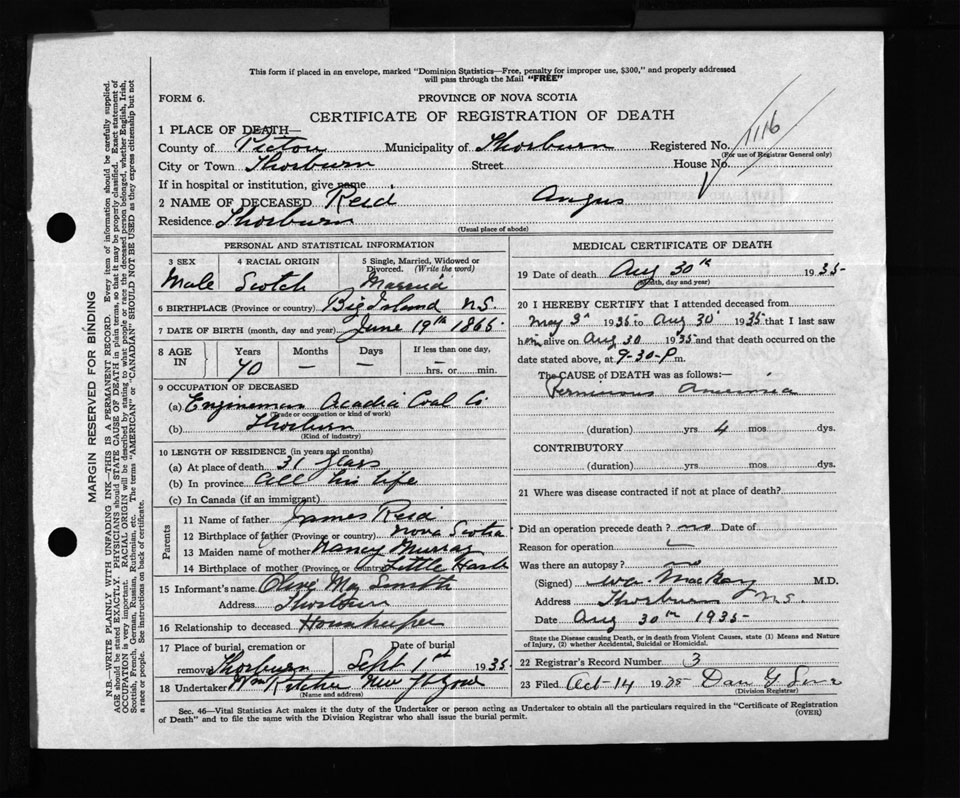 This form if placed in an envelope, marked "Dominion Statistics—Free, penalty for improper use, $300," and properly addressed
will pass through the Mail "FREE"
FORM 6.
PROVINCE OF NOVA SCOTIA
CERTIFICATE OF REGISTRATION OF DEATH
1 PLACE OF DEATH—
County of Pictou Municipality of Thorburn Registered No. 1116
(For use of Registrar General only)
City or Town Thorburn Street House No.
If in hospital or institution, give name
2 NAME OF DECEASED Reid Angus
Residence Thorburn
(Usual place of abode)
PERSONAL AND STATISTICAL INFORMATION
3 SEX 4 RACIAL ORIGIN 5 Single, Married, Widowed or Divorced. (Write the word)
Male Scotch Married
6 BIRTHPLACE (Province or country) Big Island N.S.
7 DATE OF BIRTH (month, day and year) June 19th 1866
8 AGE IN Years Months Days If less than one day,
70 — — — hrs. or min.
9 OCCUPATION OF DECEASED
(a) Engineman Acadia Coal Co
(Trade or occupation or kind of work)
(b) Thorburn
(Kind of industry)
10 LENGTH OF RESIDENCE (in years and months)
(a) At place of death 31 years
(b) In province all his life
(c) In Canada (if an immigrant)
Parents
11 Name of father James Reid
12 Birthplace of father (Province or country) Nova Scotia
13 Maiden name of mother Nancy Murray
14 Birthplace of mother (Province or country) Little Harb
15 Informant's name Olive May Smith
Address Thorburn
16 Relationship to deceased Housekeeper
17 Place of burial, cremation or removal Thorburn Date of burial Sept 1st 1935
18 Undertaker Wm Ritchie New Glasgow
(Name and address)
MEDICAL CERTIFICATE OF DEATH
19 Date of death Aug 30th 1935
(Month, day and year)
20 I HEREBY CERTIFY that I attended deceased from
May 3d 1935 to Aug 30 1935 that I last saw
him alive on Aug 30 1935 and that death occurred on the
date stated above, at 9-30-P m.
The CAUSE of DEATH was as follows:—
Pernicious Anaemia
(duration) yrs 4 mos dys.
CONTRIBUTORY
(duration) yrs. mos. dys.
21 Where was disease contracted if not at place of death?
Did an operation precede death? no Date of
Reason for operation
Was there an autopsy? no
(Signed) MacKay M.D.
Address Thorburn N.S.
Date Aug 30th 1935
State the Disease causing Death, or in death from Violent Causes, state (1) Means and Nature
of Injury, (2) whether Accidental, Suicidal or Homicidal.
22 Registrar's Record Number 3
23 Filed Oct-14 1935 Dan G
(Division Registrar)
Sec. 46—Vital Statistics Act makes it the duty of the Undertaker or person acting as Undertaker to obtain all the particulars required in the "Certificate of Registration
of Death" and to file the same with the Division Registrar who shall issue the burial permit.
(OVER)
MARGIN RESERVED FOR BINDING
N.B.—WRITE PLAINLY WITH UNFADING INK—THIS IS A PERMANENT RECORD. Every item of information should be carefully supplied.
AGE should be stated EXACTLY. PHYSICIANS should STATE CAUSE OF DEATH in plain terms, so that it may be properly classified. Exact statement of
OCCUPATION is very important. RACIAL ORIGIN will be described by stating to what people or race the deceased person belonged, whether English, Irish,
Scottish, French, German, Russian, Ruthenian, etc. The terms "AMERICAN" or "CANADIAN" SHOULD NOT BE USED as they express citizenship but not
a race or people. See instructions on back of certificate.